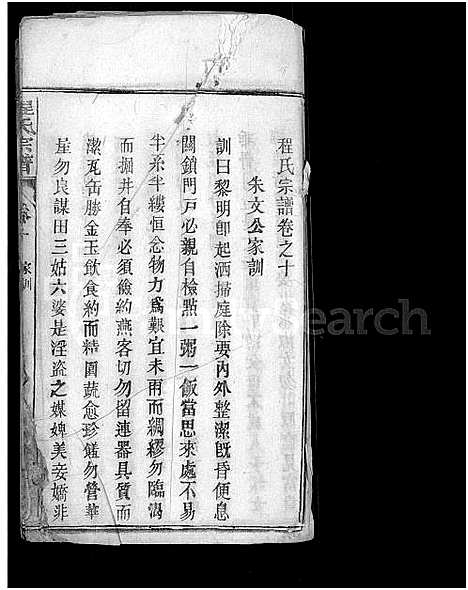 程氏宗譜卷之十
朱文公家訓
訓曰黎明卽起洒掃庭除要內外整潔旣昏便息
關鎖門戸必親自檢㸃一粥一飯當思來處不易
半糸半縷恒念物力爲艱宜未雨而綢繆勿臨渴
而掘井自奉必須儉約燕客切勿留連器具質而
潔瓦缶勝金玉飲食約而精園蔬愈珍饈勿營華
屋勿良謀田三姑六婆是淫盜之媒婢美妾嬌非
程氏宗譜
家訓
search